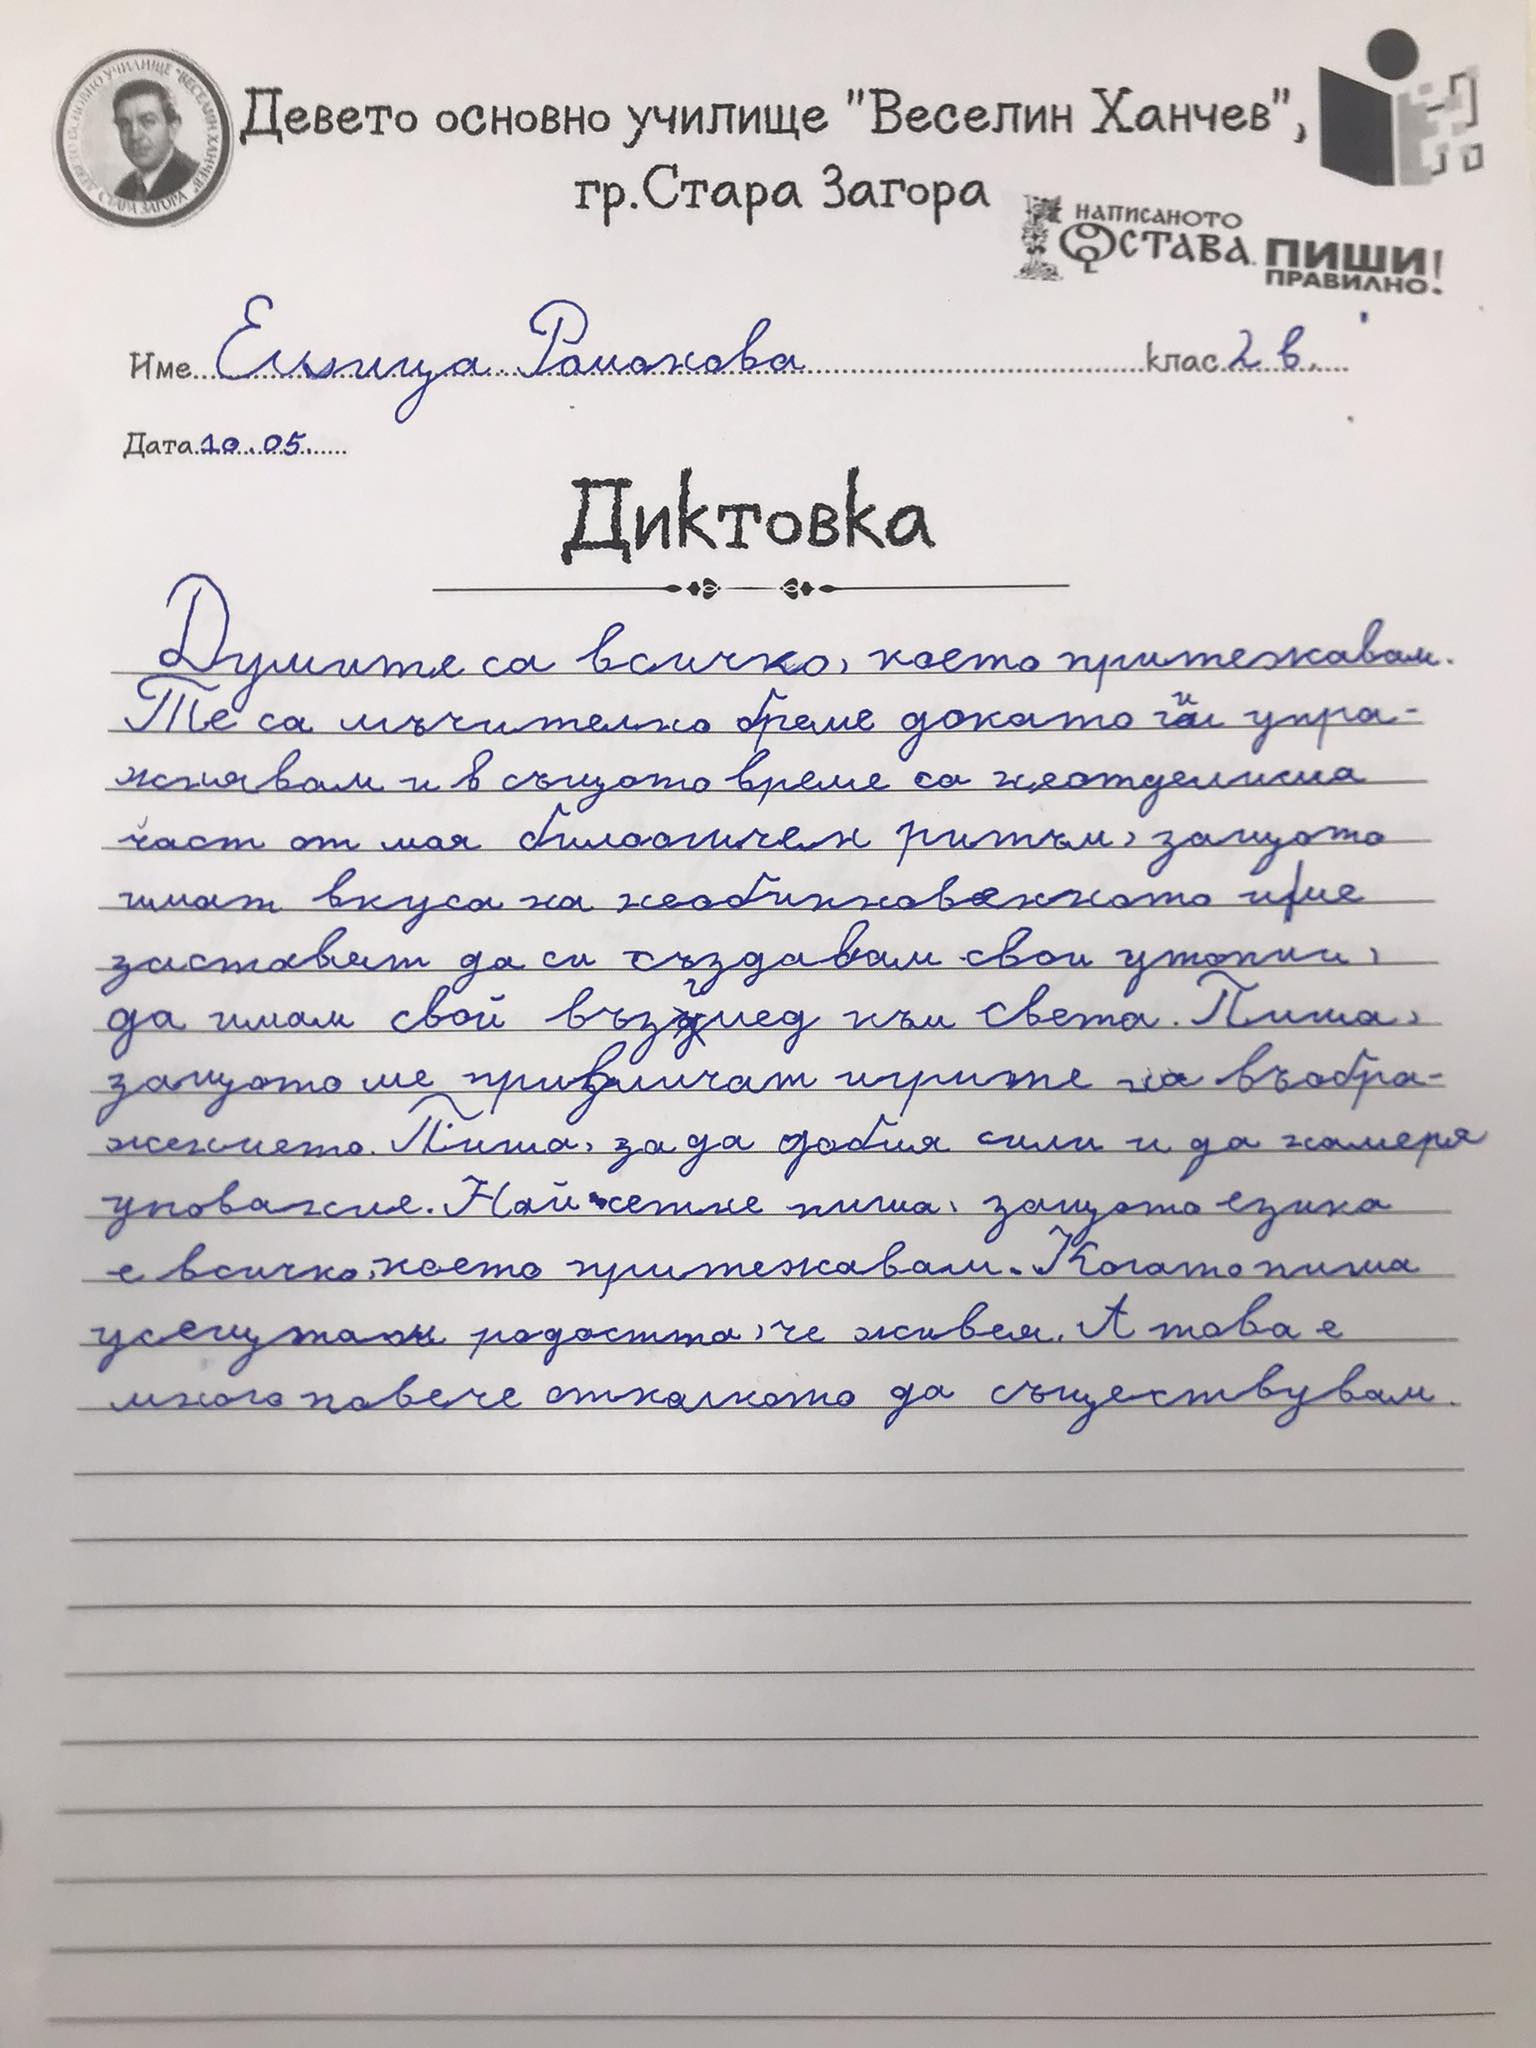 ДЕВЕТО ОСНОВНО УЧИЛИЩЕ "ВЕСЕЛИН ХАНЧЕВ"
СТАРА ЗАГОРА
Девето основно училище "Веселин Ханчев",
гр.Стара Загора
НАПИСАНОТО
ОСТАВА. ПИШИ
ПРАВИЛНО!
Име Елица Романова клас 2 в.
Дата 10.05.
Диктовка
Думите са всичко, което притежавам.
Те са мъчително бреме докато ги упра-
жнявам и в същото време са неотделима
част от моя билогичен ритъм, защото
имат вкуса на необикновенното и ме
заставят да си създавам свои утопии,
да имам свой възглед към света. Пиша,
защото ме привличат игрите на въобра-
жението. Пиша, за да добия сили и да намеря
упование. Най сетне пиша, защото езика
е всичко, което притежавам. Когато пиша
усещам радостта, че живея. А това е
много повече отколкото да съществувам.